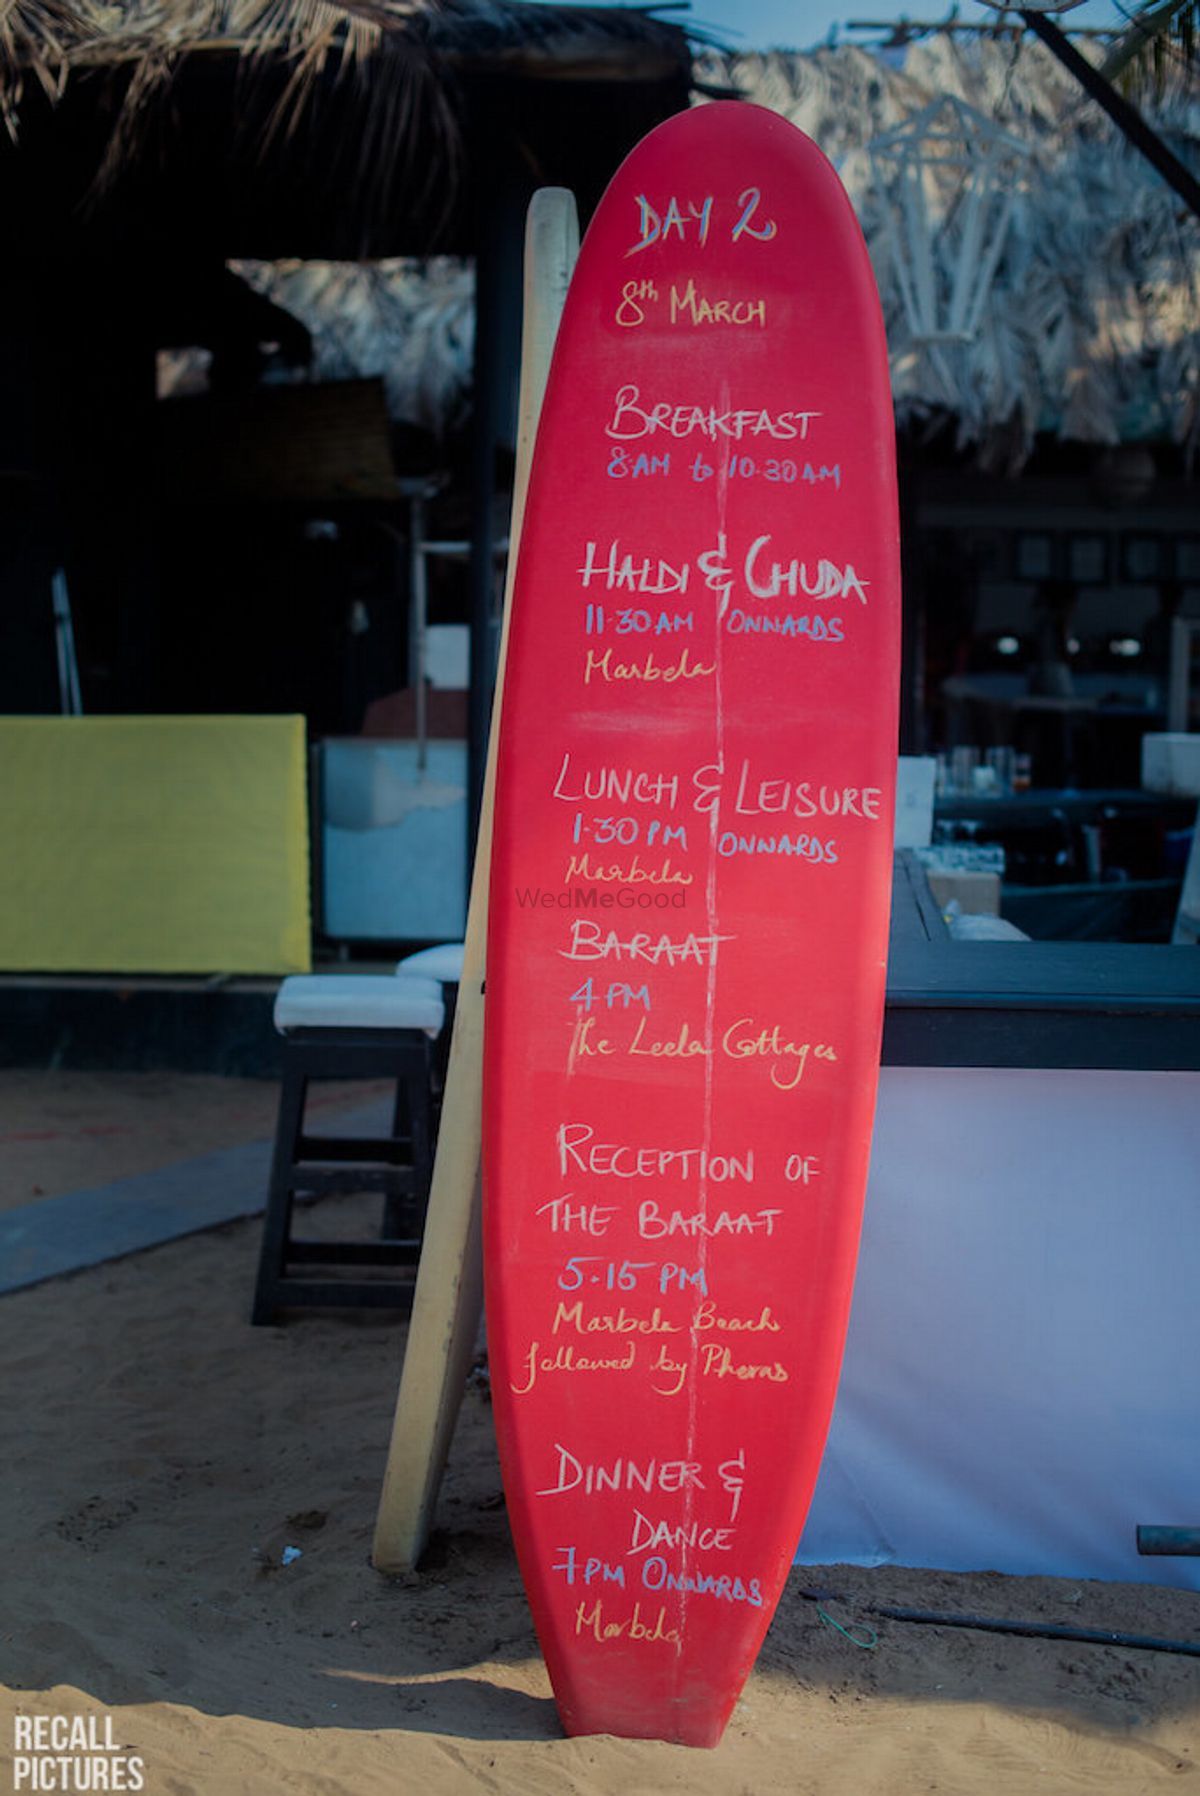 DAY 2
8th MARCH
BREAKFAST
8 AM to 10.30 AM
HALDI & CHUDA
11.30 AM ONWARDS
Marbela
LUNCH & LEISURE
1.30 PM ONWARDS
Marbela
WedMeGood
BARAAT
4 PM
The Leela Cottages
RECEPTION OF
THE BARAAT
5.15 PM
Marbela Beach
followed by Pheras
DINNER &
DANCE
7 PM ONWARDS
Marbela
RECALL
PICTURES